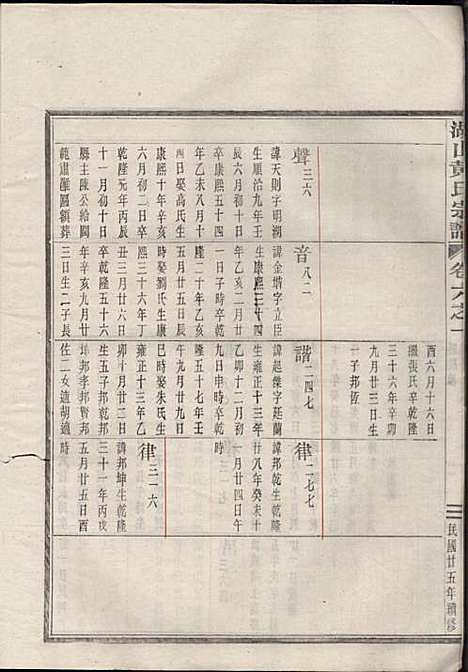 湖山黃氏宗譜
卷六之一
民國廿五年續修
聲三六
諱天則字明湖
生順治九年壬
辰六月初十日
年乙未八月十
四日娶高氏生
康熙十年辛亥
六月初二日卒
乾隆元年丙辰
十一月初十日
縣主陳公給匾
範肅
音八二
諱金堦字立臣
生康熙三十四
年乙亥二月十
一日子時卒乾
隆二十年乙亥
五月廿五日亥
時娶劉氏生康
熙三十六年丁
丑三月廿六日
卒乾隆廿五
年辛亥九月廿
三日生二子長
諧二四七
諱超傑字廷蘭
生雍正十三年
乙卯十二月初
九日申時卒乾
隆五十七年壬
午九月廿九日
巳時娶朱氏生
雍正十三年乙
卯十月廿二日
生五子邦乾邦
坤邦孝邦賢邦
佐二女適胡適
酉六月十六日
張氏辛卯乾隆
三十六年辛卯
九月廿三日生
一子邦恆
律二七七
諱邦乾生乾隆
廿八年癸未十
一月廿四日午
時
律三一六
諱邦坤生乾隆
三十一年丙戌
五月廿五日酉
時